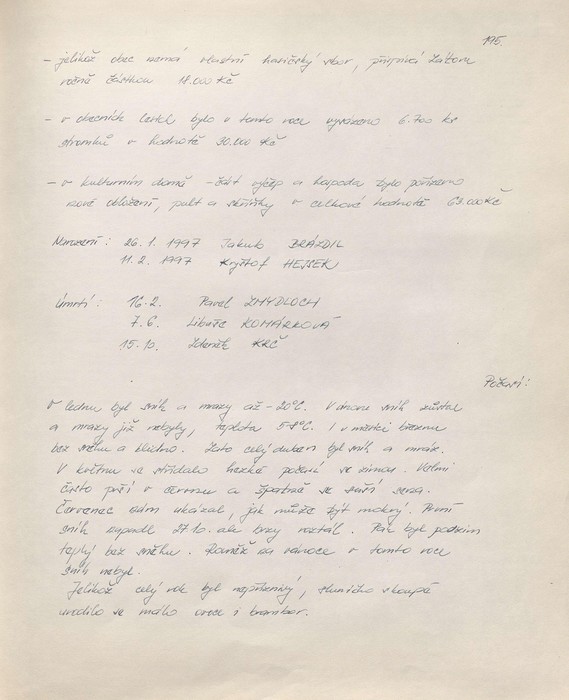 195.
- jelikož obec nemá vlastní hasičský sbor, přispívá Zátoru
ročně částkou 18.000 Kč
- v obecních lesích bylo v tomto roce vysázeno 6.700 ks
stromků v hodnotě 30.000 Kč
- v kulturním domě - část výčep a hospoda bylo pořízeno
nové obložení, pult a skříňky v celkové hodnotě 63.000 Kč
Narození: 26.1. 1997 Jakub BRÁZDIL
11.2. 1997 Kryštof HEJSEK
Úmrtí: 16.2. Pavel ZMYDLOCH
7.6. Libuše KOMÁRKOVÁ
15.10. Zdeněk KRČ
Počasí:
V lednu byl sníh a mrazy až -20°C. V únoru sníh zůstal
a mrazy již nebyly, teplota 5-8°C. I v měsíci březnu
bez sněhu a bylo. Zato celý duben byl sníh a mráz.
V květnu se střídalo hezké počasí se zimou. Velmi
často prší v červnu a špatně se suší sena.
Červenec nám ukázal, jak může být mokrý. První
sníh napadl 27.10. ale brzy roztál. Pak byl podzim
teplý bez sněhu. Rovněž na vánoce v tomto roce
sníh nebyl.
Jelikož celý rok byl nepříznivý, sluníčko skoupé
urodilo se málo ovoce i brambor.